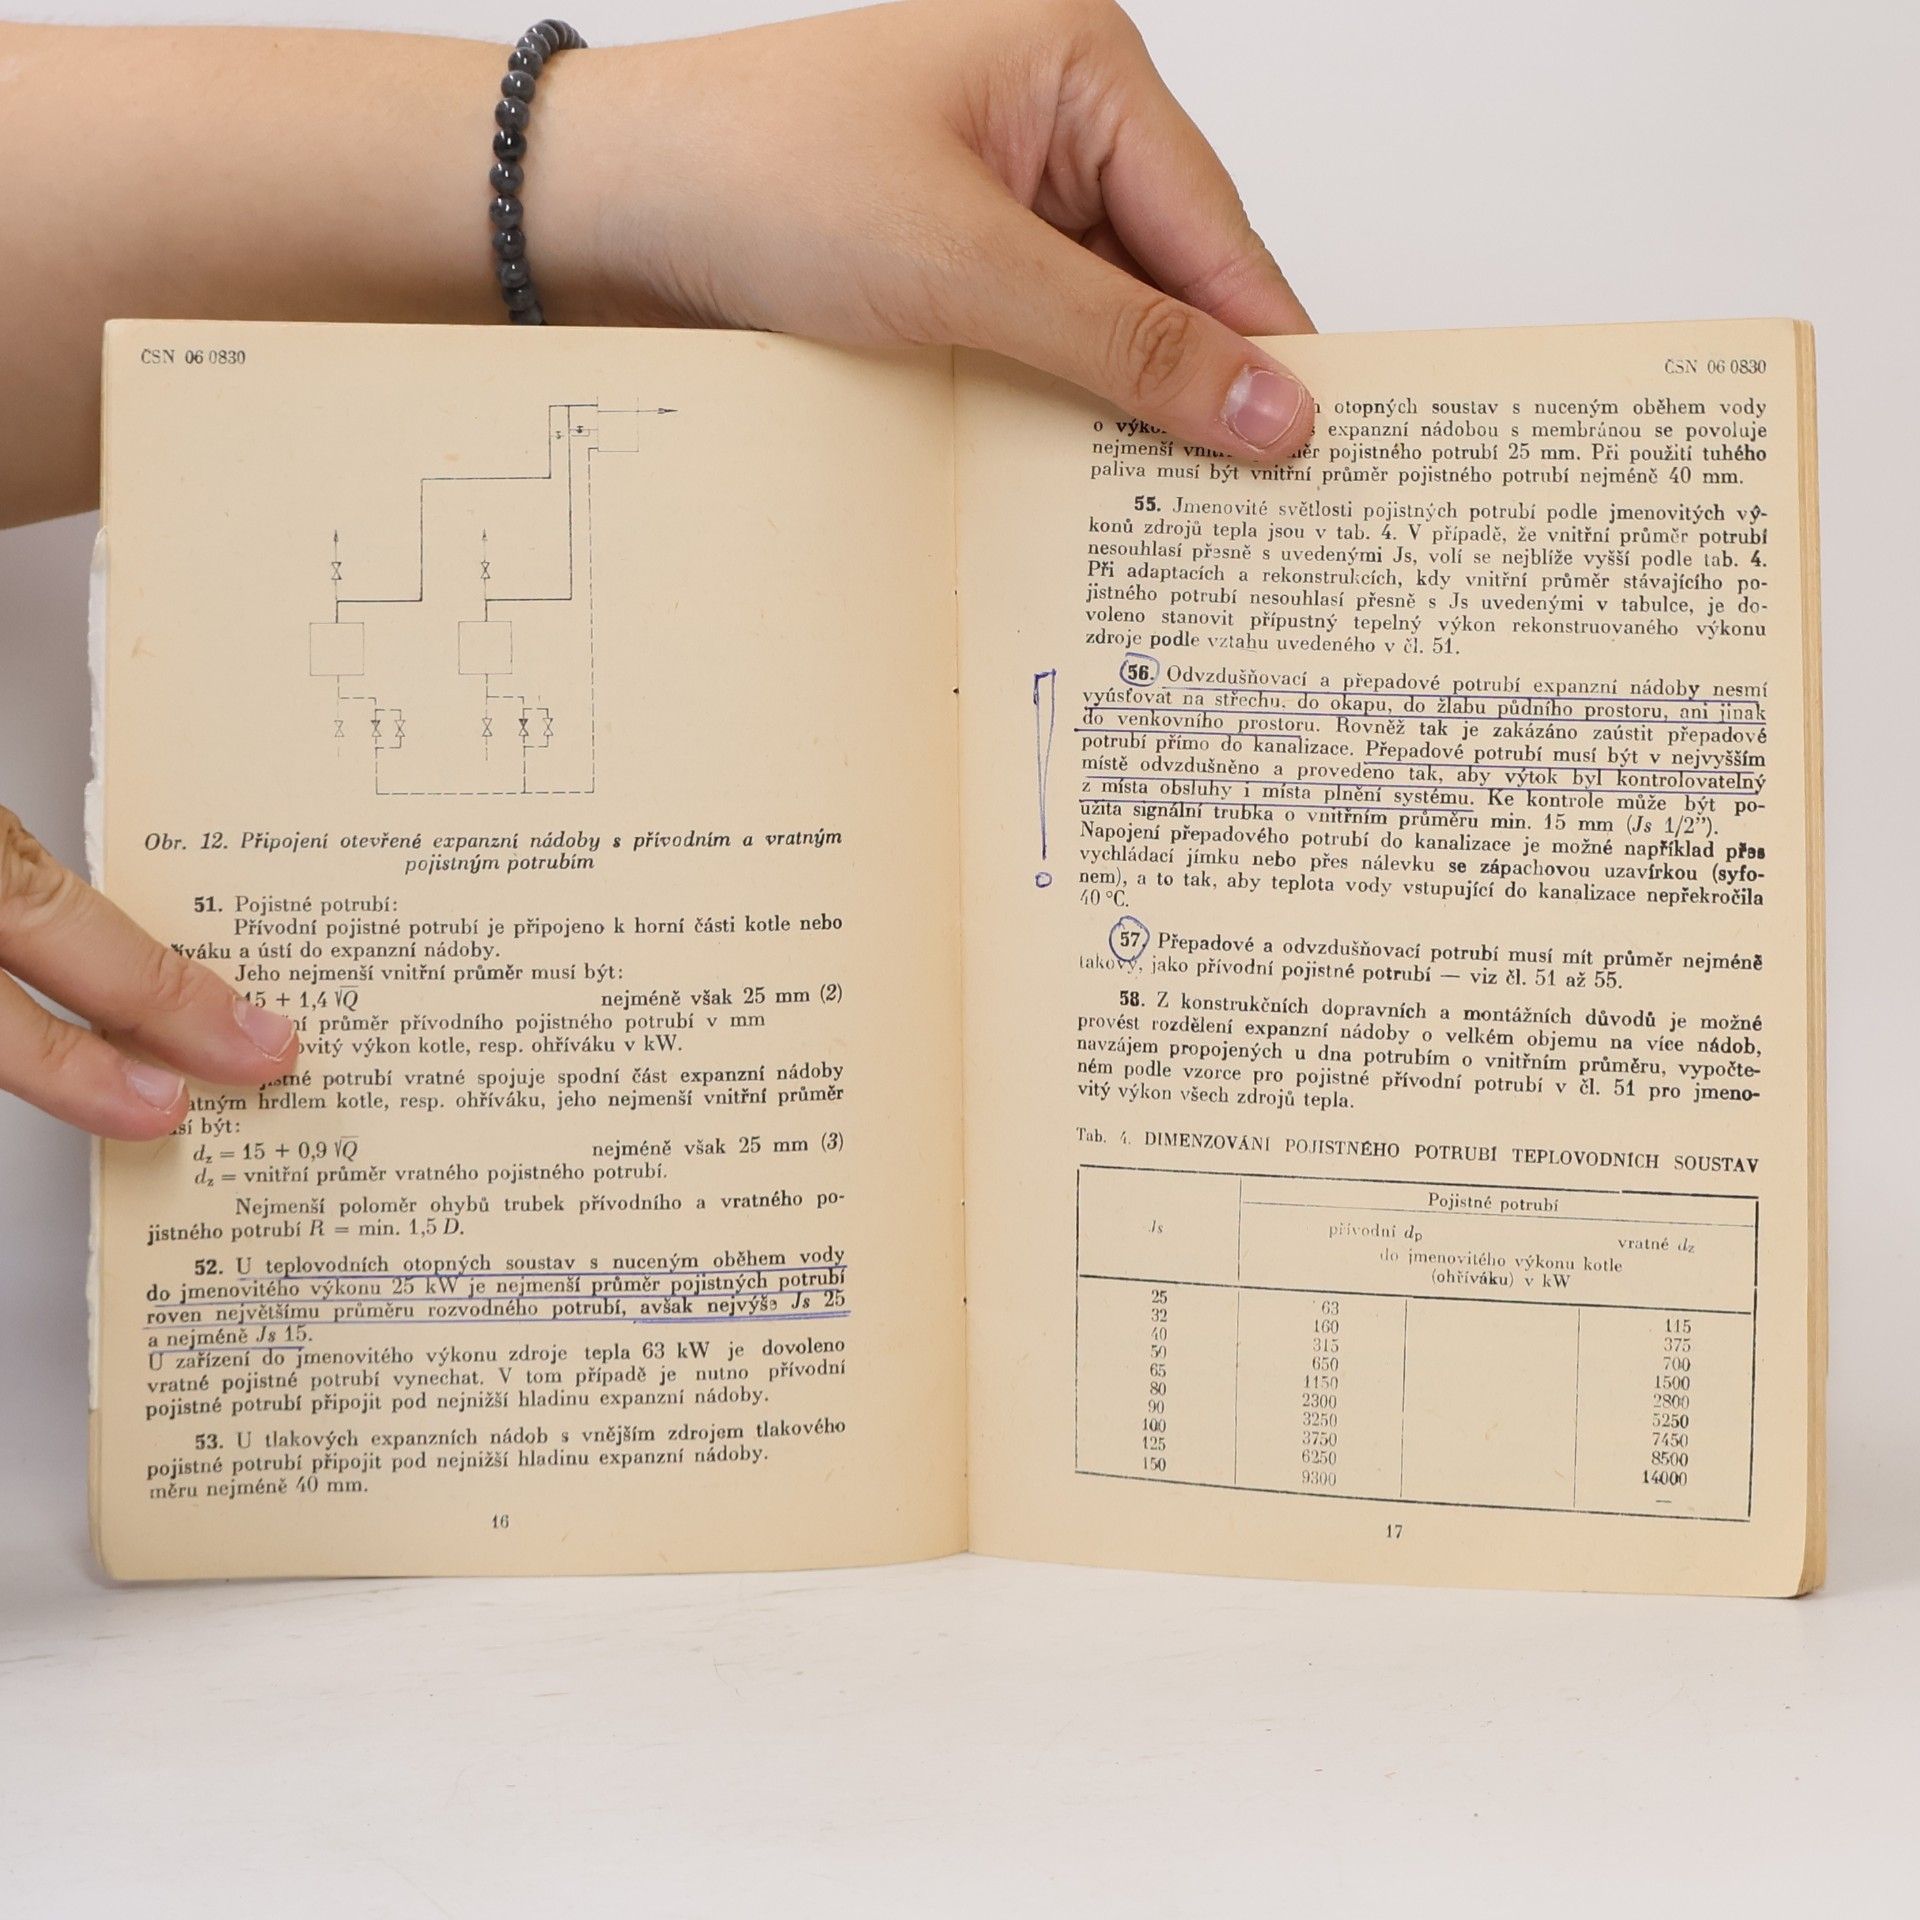 ČSN 06 0830
Obr. 12. Připojení otevřené expanzní nádoby s přívodním a vratným
pojistným potrubím
51. Pojistné potrubí:
Přívodní pojistné potrubí je připojeno k horní části kotle nebo
a ústí do expanzní nádoby.
Jeho nejmenší vnitřní průměr musí být:
15 + 1,4 √Q nejméně však 25 mm (2)
průměr přívodního pojistného potrubí v mm
výkon kotle, resp. ohříváku v kW.
potrubí vratné spojuje spodní část expanzní nádoby
hrdlem kotle, resp. ohříváku, jeho nejmenší vnitřní průměr
být:
dz = 15 + 0,9 √Q nejméně však 25 mm (3)
dz = vnitřní průměr vratného pojistného potrubí.
Nejmenší poloměr ohybů trubek přívodního a vratného po-
jistného potrubí R = min. 1,5 D.
52. U teplovodních otopných soustav s nuceným oběhem vody
do jmenovitého výkonu 25 kW je nejmenší průměr pojistných potrubí
roven největšímu průměru rozvodného potrubí, avšak nejvýše Js 25
a nejméně Js 15.
U zařízení do jmenovitého výkonu zdroje tepla 63 kW je dovoleno
vratné pojistné potrubí vynechat. V tom případě je nutno přívodní
pojistné potrubí připojit pod nejnižší hladinu expanzní nádoby.
53. U tlakových expanzních nádob s vnějším zdrojem tlakového
pojistné potrubí připojit pod nejnižší hladinu expanzní nádoby.
měru nejméně 40 mm.
16
ČSN 06 0830
otopných soustav s nuceným oběhem vody
o expanzní nádobou s membránou se povoluje
nejmenší pojistného potrubí 25 mm. Při použití tuhého
paliva musí být vnitřní průměr pojistného potrubí nejméně 40 mm.
55. Jmenovité světlosti pojistných potrubí podle jmenovitých vý-
konů zdrojů tepla jsou v tab. 4. V případě, že vnitřní průměr potrubí
nesouhlasí přesně s uvedenými Js, volí se nejblíže vyšší podle tab. 4.
Při adaptacích a rekonstrukcích, kdy vnitřní průměr stávajícího po-
jistného potrubí nesouhlasí přesně s Js uvedenými v tabulce, je do-
voleno stanovit přípustný tepelný výkon rekonstruovaného výkonu
zdroje podle vztahu uvedeného v čl. 51.
56. Odvzdušňovací a přepadové potrubí expanzní nádoby nesmí
vyúsťovat na střechu, do okapu, do žlabu půdního prostoru, ani jinak
do venkovního prostoru. Rovněž tak je zakázáno zaústit přepadové
potrubí přímo do kanalizace. Přepadové potrubí musí být v nejvyšším
místě odvzdušněno a provedeno tak, aby výtok byl kontrolovatelný
z místa obsluhy i místa plnění systému. Ke kontrole může být po-
užita signální trubka o vnitřním průměru min. 15 mm (Js 1/2”).
Napojení přepadového potrubí do kanalizace je možné například přes
vychládací jímku nebo přes nálevku se zápachovou uzavírkou (syfo-
nem), a to tak, aby teplota vody vstupující do kanalizace nepřekročila
40 °C.
57. Přepadové a odvzdušňovací potrubí musí mít průměr nejméně
takový, jako přívodní pojistné potrubí — viz čl. 51 až 55.
58. Z konstrukčních dopravních a montážních důvodů je možné
provést rozdělení expanzní nádoby o velkém objemu na více nádob,
navzájem propojených u dna potrubím o vnitřním průměru, vypočte-
ném podle vzorce pro pojistné přívodní potrubí v čl. 51 pro jmeno-
vitý výkon všech zdrojů tepla.
Tab. 4. DIMENZOVÁNÍ POJISTNÉHO POTRUBÍ TEPLOVODNÍCH SOUSTAV
Pojistné potrubí
Js přívodní dp vratné dz
do jmenovitého výkonu kotle
(ohříváku) v kW
25 63 115
32 160 375
40 315 700
50 650 1500
65 1150 2800
80 2300 5250
90 3250 7450
100 3750 8500
125 6250 14000
150 9300 —
17